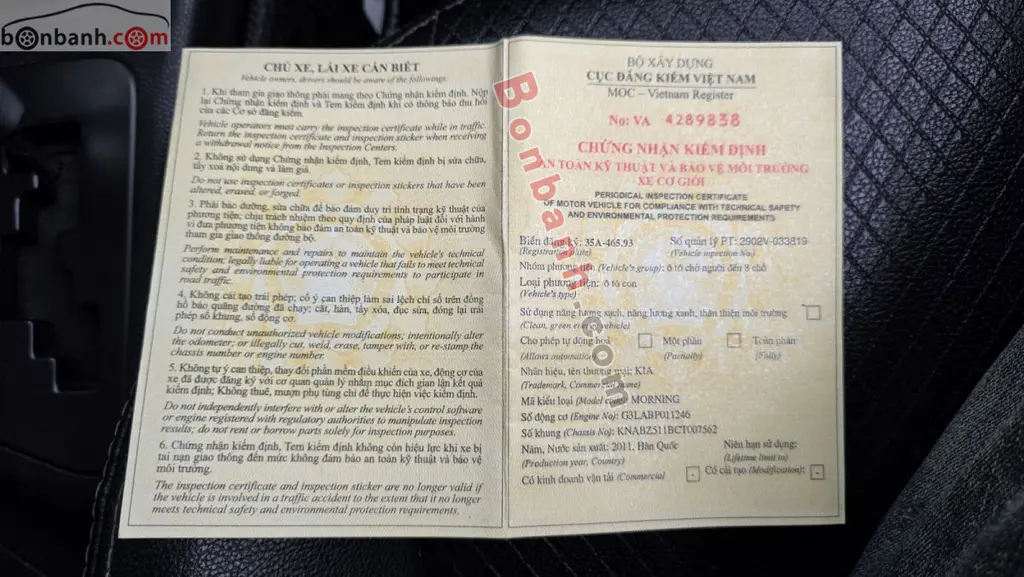 bonbanh.com
CHỦ XE, LÁI XE CẦN BIẾT
Vehicle owners, drivers should be aware of the followings
1. Khi tham gia giao thông phải mang theo Chứng nhận kiểm định. Nộp
lại Chứng nhận kiểm định và Tem kiểm định khi có thông báo thu hồi
của các Cơ sở đăng kiểm.
Vehicle operators must carry the inspection certificate while in traffic.
Return the inspection certificate and inspection sticker when receiving
a withdrawal notice from the Inspection Centers.
2. Không sử dụng Chứng nhận kiểm định, Tem kiểm định bị sửa chữa,
tẩy xoá nội dung và làm giả.
Do not use inspection certificates or inspection stickers that have been
altered, erased, or forged.
3. Phải bảo dưỡng, sửa chữa để bảo đảm duy trì tình trạng kỹ thuật của
phương tiện; chịu trách nhiệm theo quy định của pháp luật đối với hành
vi đưa phương tiện không bảo đảm an toàn kỹ thuật và bảo vệ môi trường
tham gia giao thông đường bộ.
Perform maintenance and repairs to maintain the vehicle's technical
condition; legally liable for operating a vehicle that fails to meet technical
safety and environmental protection requirements to participate in
road traffic.
4. Không cải tạo trái phép; cố ý can thiệp làm sai lệch chỉ số trên đồng
hồ báo quãng đường đã chạy; cắt, hàn, tẩy xóa, đục sửa, đóng lại trái
phép số khung, số động cơ.
Do not conduct unauthorized vehicle modifications; intentionally alter
the odometer; or illegally cut, weld, erase, tamper with, or re-stamp the
chassis number or engine number.
5. Không tự ý can thiệp, thay đổi phần mềm điều khiển của xe, động cơ của
xe đã được đăng ký với cơ quan quản lý nhằm mục đích gian lận kết quả
kiểm định; Không thuê, mượn phụ tùng chỉ để thực hiện việc kiểm định.
Do not independently interfere with or alter the vehicle's control software
or engine registered with regulatory authorities to manipulate inspection
results; do not rent or borrow parts solely for inspection purposes.
6. Chứng nhận kiểm định, Tem kiểm định không còn hiệu lực khi xe bị
tai nạn giao thông đến mức không đảm bảo an toàn kỹ thuật và bảo vệ
môi trường.
The inspection certificate and inspection sticker are no longer valid if
the vehicle is involved in a traffic accident to the extent that it no longer
meets technical safety and environmental protection requirements.
BỘ XÂY DỰNG
CỤC ĐĂNG KIỂM VIỆT NAM
MOC – Vietnam Register
No: VA 4289838
CHỨNG NHẬN KIỂM ĐỊNH
AN TOÀN KỸ THUẬT VÀ BẢO VỆ MÔI TRƯỜNG
XE CƠ GIỚI
PERIODICAL INSPECTION CERTIFICATE
OF MOTOR VEHICLE FOR COMPLIANCE WITH TECHNICAL SAFETY
AND ENVIRONMENTAL PROTECTION REQUIREMENTS
Biển đăng ký: 35A-465.93 Số quản lý PT: 2902V-033819
(Registration Plate) (Vehicle inspection No.)
Nhóm phương tiện (Vehicle's group): ô tô chở người đến 8 chỗ
Loại phương tiện: ô tô con
(Vehicle's type)
Sử dụng năng lượng sạch, năng lượng xanh, thân thiện môi trường
(Clean, green energy vehicle)
Cho phép tự động hoá Một phần Toàn phần
(Allows automation) (Partially) (Fully)
Nhãn hiệu, tên thương mại: KIA
(Trademark, Commercial name)
Mã kiểu loại (Model code) MORNING
Số động cơ (Engine No): G3LABP011246
Số khung (Chassis No): KNABZ511BCT007562
Năm, Nước sản xuất: 2011, Hàn Quốc Niên hạn sử dụng:
(Production year, Country) (Lifetime limit to)
Có kinh doanh vận tải (Commercial - Có cải tạo (Modification): -
Bonbanh.com